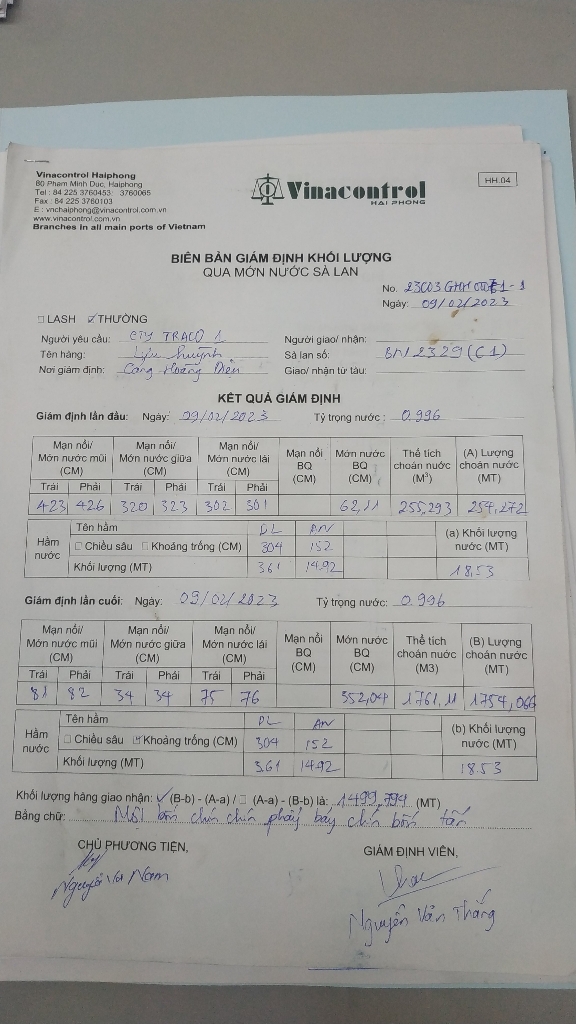 Vinacontrol Haiphong
80 Pham Minh Duc, Haiphong
Tel : 84 225 3760453; 3760065
Fax : 84 225 3760103
E : vnchaiphong@vinacontrol.com.vn
www.vinacontrol.com.vn
Branches in all main ports of Vietnam
Vinacontrol
HAI PHONG
HH.04
BIÊN BẢN GIÁM ĐỊNH KHỐI LƯỢNG
QUA MỚN NƯỚC SÀ LAN
No.
Ngày: 09/02/2023
LASH THƯỜNG
Người yêu cầu: CTY TRACO 1 Người giao/ nhận:
Tên hàng: Lưu huỳnh Sà lan số: BN/2329 (C1)
Nơi giám định: Cảng Hoàng Diệu Giao/ nhận từ tàu:
KẾT QUẢ GIÁM ĐỊNH
Giám định lần đầu: Ngày: 09/02/2023 Tỷ trọng nước : 0.996
Mạn nổi/ Mớn nước mũi (CM) Mạn nổi/ Mớn nước giữa (CM) Mạn nổi/ Mớn nước lái (CM) Mạn nổi BQ (CM) Mớn nước BQ (CM) Thể tích choán nước (M³) (A) Lượng choán nước (MT)
Trái Phải Trái Phải Trái Phải
423 426 320 323 302 301 62,11 255,293 254,272
Hầm nước Tên hầm DL AN (a) Khối lượng nước (MT)
Chiều sâu Khoảng trống (CM) 304 152
Khối lượng (MT) 3.61 14.92 18.53
Giám định lần cuối: Ngày: 09/02/2023 Tỷ trọng nước: 0.996
Mạn nổi/ Mớn nước mũi (CM) Mạn nổi/ Mớn nước giữa (CM) Mạn nổi/ Mớn nước lái (CM) Mạn nổi BQ (CM) Mớn nước BQ (CM) Thể tích choán nước (M3) (B) Lượng choán nước (MT)
Trái Phải Trái Phải Trái Phải
81 82 34 34 75 76 352,04 1761,11 1754,066
Hầm nước Tên hầm DL AN (b) Khối lượng nước (MT)
Chiều sâu Khoảng trống (CM) 304 152
Khối lượng (MT) 3.61 14.92 18.53
Khối lượng hàng giao nhận: (B-b) - (A-a) / (A-a) - (B-b) là: 1499,794 (MT)
Bằng chữ: Một bốn chín chín phảy bảy chín bốn tấn
CHỦ PHƯƠNG TIỆN, GIÁM ĐỊNH VIÊN,
Nguyễn Va Nam
Nguyễn Văn Thắng